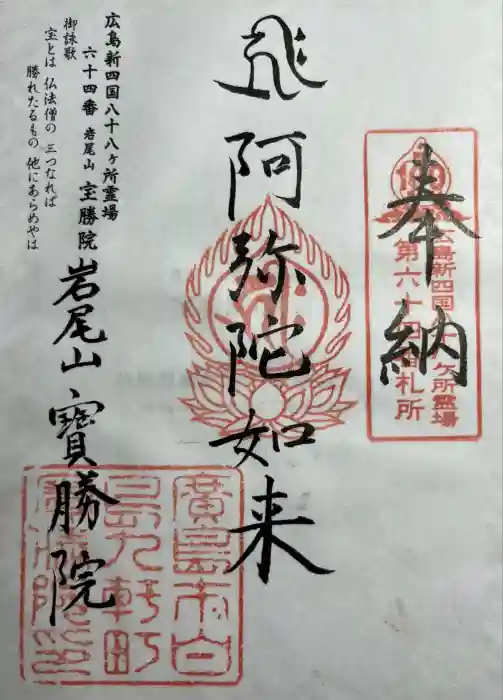 奉納
広島新四国八十八ヶ所霊場
第六十四番札所
阿弥陀如来
広島新四国八十八ヶ所霊場
六十四番 岩尾山 宝勝院
御詠歌
宝とは 仏法僧の 三つなれば
勝れたるもの 他にあらめやは
岩尾山 寶勝院
廣島市白
島九軒町